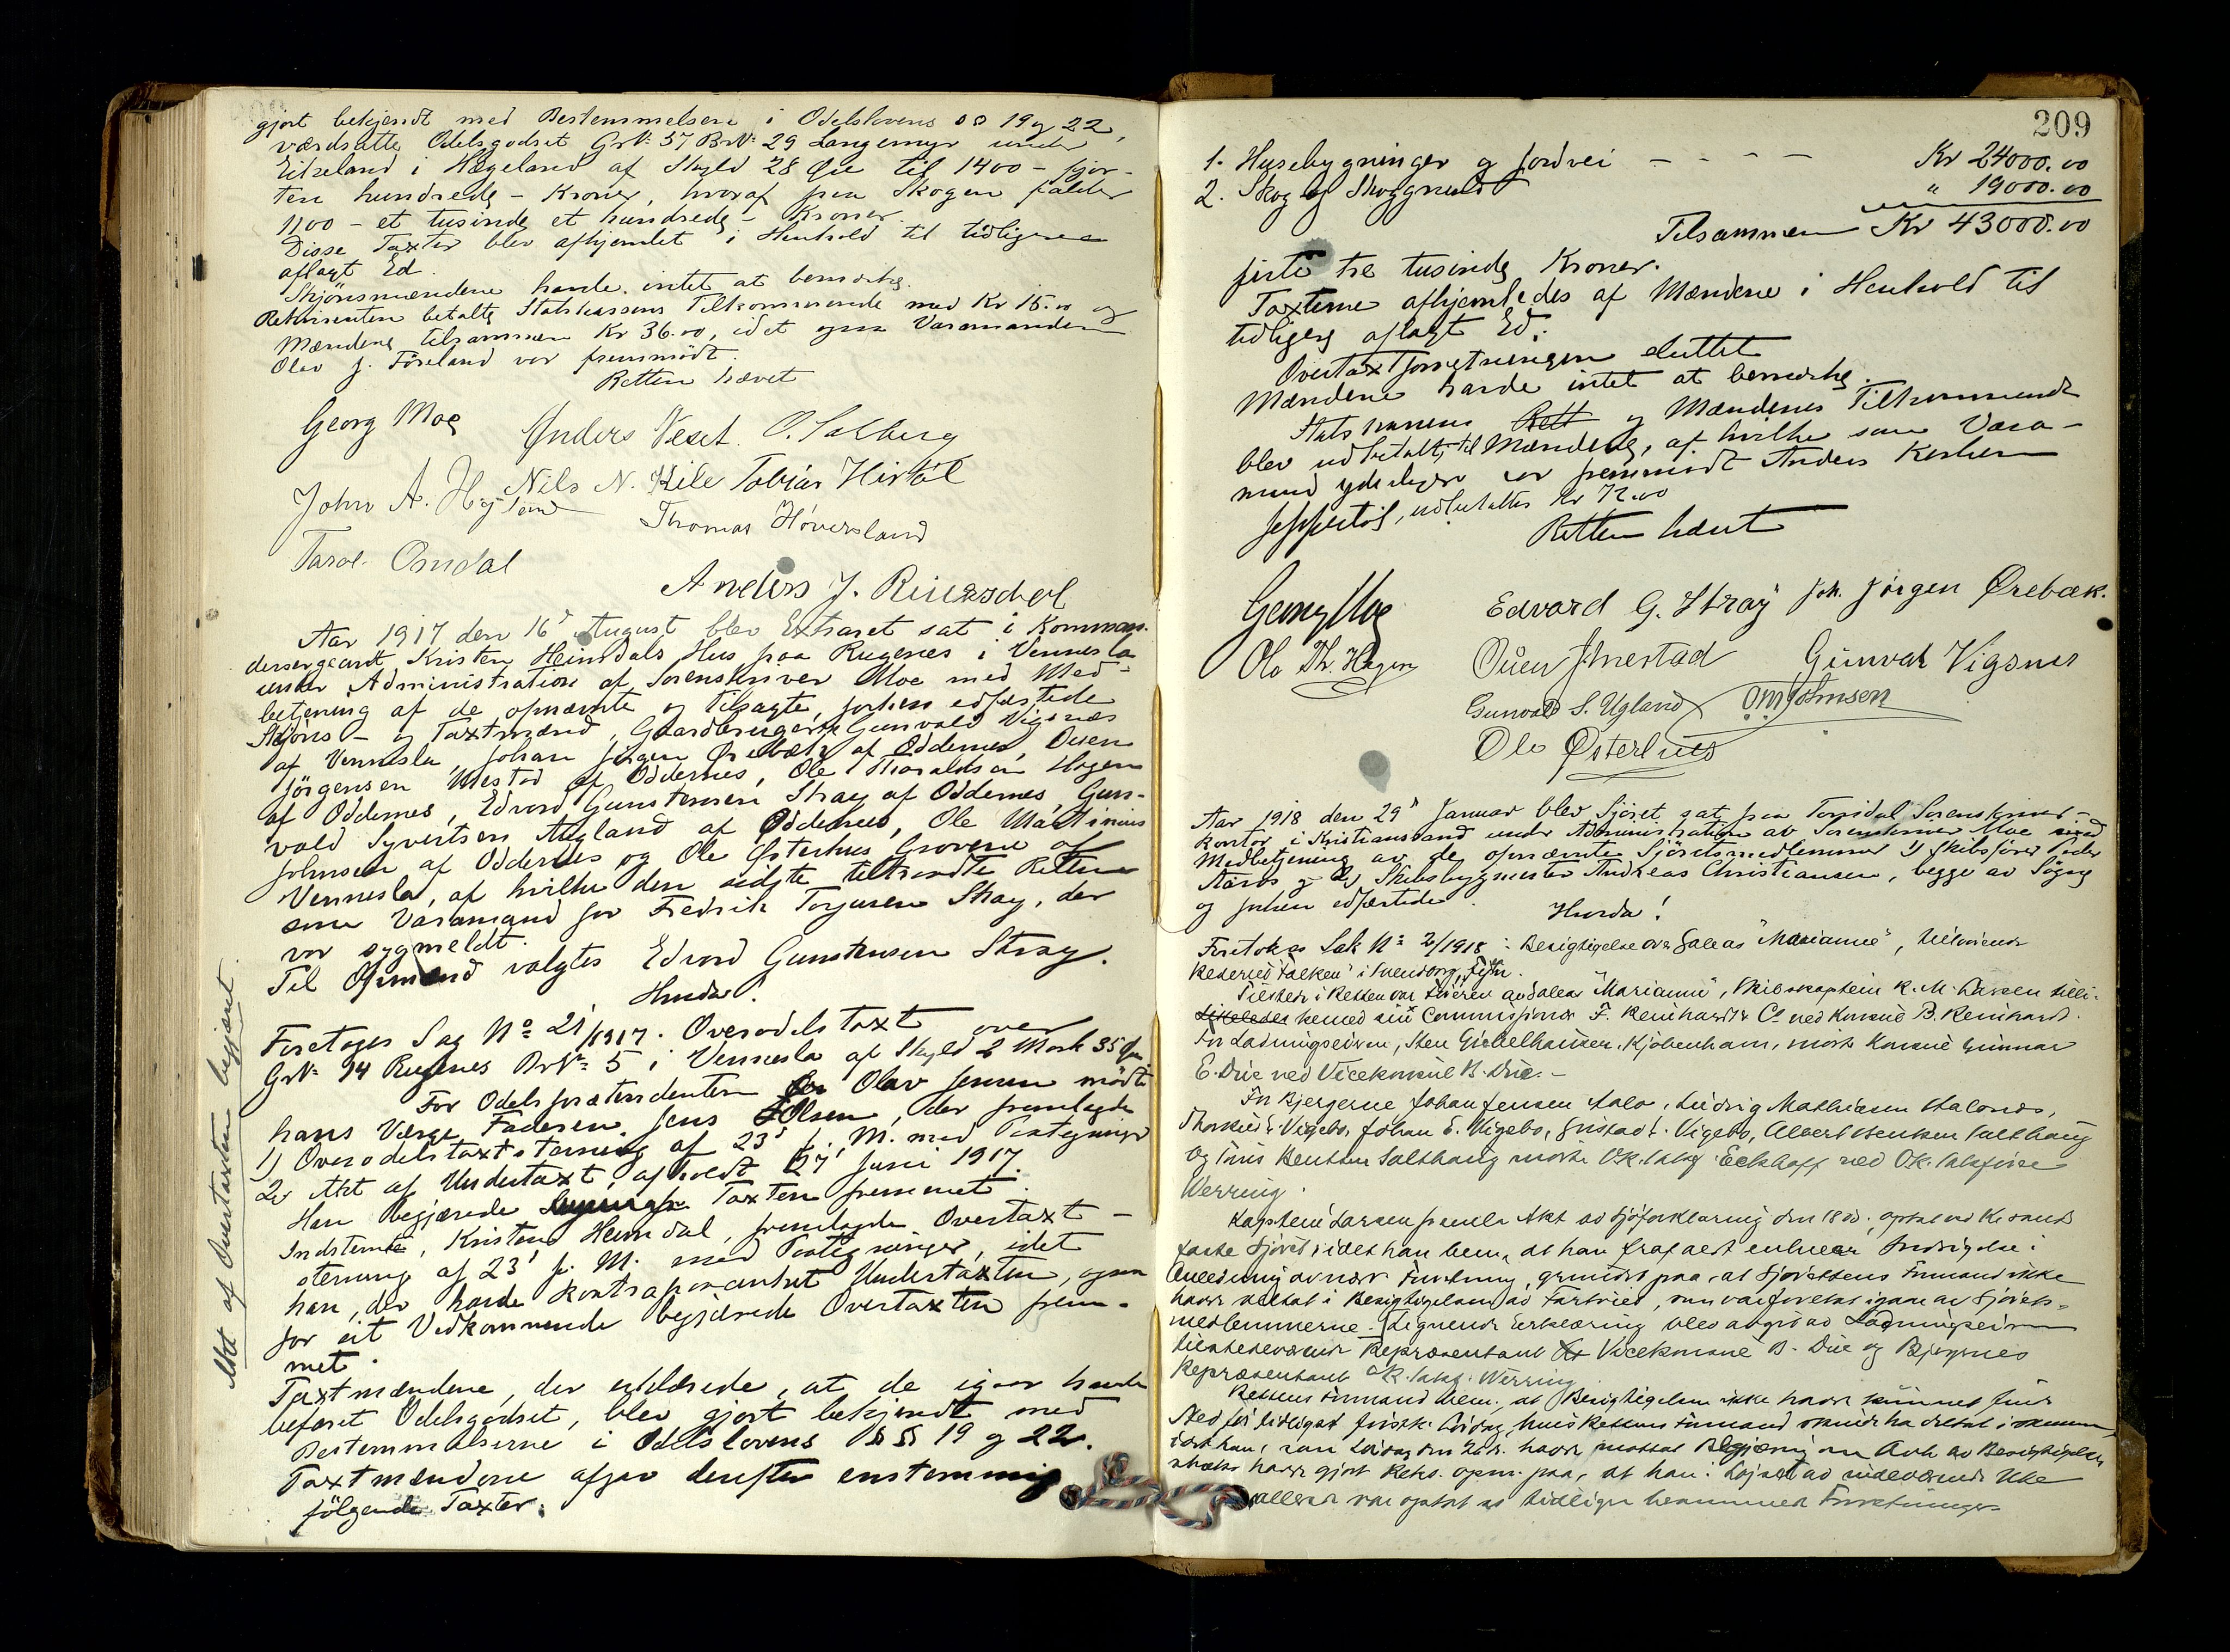 gjort bekjendt med Bestemmelserne i Odelslovens §§ 19 og 22,
værdsatte Odelsgodset G.No 57 B.No 29 Langemyr under
Eikeland i Hægeland af Skyld 28 Øre til 1400 - fjor-
ten hundrede - Kroner, hvoraf paa Skogen falder
1100 - et tusinde et hundrede - Kroner.
Disse Taxter blev afhjemlet i Henhold til tidligere
aflagt Ed.
Skjönsmændene havde intet at bemærke.
Rekvirenten betalte Statskassens Tilkommende med Kr 15.00 og
Mændene tilsammen Kr 36.00, idet ogsaa Varamanden
Olav J. Föreland var fremmödt.
Retten hævet
Georg Moe Anders Veset. O. Solberg
John A. Hægeland Nils N. Kile Tobias Hirtöl
Thomas Höversland
Tarol. Omdal
Anders J. Rinesdol
Aar 1917 den 16' August blev Extraret sat i Komman-
dersergeant Kristen Heimdals Hus paa Rugenes i Vennesla
under Administration af Sorenskriver Moe med Med-
betjening af de opnævnte og tilsagte, forhen edfæstede
Skjöns- og Taxtmænd, Gaardbrugerne Gunvald Vigsnes
af Vennesla, Johan Jörgen Ørebæk af Oddernes, Ouen
Jörgensen Mestad af Oddernes, Ole Thoraldsen Hagen
af Oddernes, Edvard Gunstensen Stray af Oddernes, Gun-
vald Syvertsen Augland af Oddernes, Ole Martinius
Johnsen af Oddernes og Ole Østerhus Grovene af
Vennesla, af hvilke den sidste tiltraadte Retten
som Varamand for Fredrik Torjusen Stray, der
var sygmeldt.
Til Formand valgtes Edvard Gunstensen Stray.
Hvorda!
Akt af Overtaxten begjært.
Foretages Sag No 21/1917. Overodelstaxt over
G.No 14 Rugenes B.No 5 i Vennesla af Skyld 2 Mark 35 Øre
For Odelsprætendenten Olav Jensen mödte
hans Værge Faderen Jens Olsen, der fremlagde
1) Overodelstaxtstævning af 23' f. M. med Paategninger
2) Akt af Undertaxt, afholdt 27' Juni 1917.
Han begjærede Taxten fremmet.
Indstævnte, Kristen Heimdal, fremlagde Overtaxt-
stævning af 23' f. M. med Paategninger, idet
han, der havde kontrapaaanket Undertaxten, ogsaa
for sit Vedkommende begjærede Overtaxten frem-
met.
Taxtmændene, der erklærede, at de igaar havde
befaret Odelsgodset, blev gjort bekjendt med
Bestemmelserne i Odelslovens §§ 19 og 22.
Taxtmændene afgav derefter enstemmig
fölgende Taxter.
209
1. Husebygninger og Jordvei - - - - Kr 24000.00
2. Skog og Skoggrund " 19000.00
Tilsammen Kr 43000.00
firti tre tusinde Kroner.
Taxterne afhjemledes af Mændene i Henhold til
tidligere aflagt Ed.
Overtaxtforretningen sluttet
Mændene havde intet at bemærke.
Statskassens Rett og Mændenes Tilkommende
blev udbetalt, til Mændene, af hvilke som Vara-
mand yderligere var fremmödt Anders Kerlien
Jeppestöl, udbetaltes Kr 72.00
Retten hævet
Georg Moe Edvard G. Stray Joh. Jörgen Ørebæk.
Ole Th. Hagen Ouen J Mestad Gunvald Vigsnes
Gunvald S. Ugland O M Johnsen
Ole Østerhus
Aar 1918 den 29' Januar blev Sjöret sat paa Torridal Sorenskriver-
kontor i Kristianssand under Administration av Sorenskriver Moe med
Medbetjening av de opnævnte Sjöretsmedlemmer 1) Skibsförer Peder
Aarös og 2) Skibsbygmester Andreas Christiansen, begge av Søgne
og forhen edfæstede.
Hvorda!
Foretokes Sak No 2/1918: Besigtigelse over Galeas "Marianne", tilhörende
Rederiet "Falken" i Svendborg,
Tilstede i Retten var Föreren av Galeas "Marianne", Skibskaptein K. M. Larsen tilli-
Likeledes hemed sin Commissionær F. Reinhardt & Co ved Konsul B. Reinhardt.
For Ladningseieren, Sten Gislelhausen, Kjöbenhavn, mötte Konsul Gunnar
E. Due ved Vicekonsul B. Due. -
For Bjergerne Johan Jensen Aalo, Ludvig Mathiesen Aalonæs,
Thorkild Vigebo, Johan E. Vigebo, Gustav L. Vigebo, Albert Bentsen Salthaug
og Tönis Bentsen Salthaug mötte O.R.sakf. Eckhoff ved O.R. sakförer
Werring.
Kaptein Larsen fremla Akt av Sjöforklaring den 18 ds., optat ved Kr.sands
faste Sjöret, idet han bem. at han frafaldt enhver Indsigelse i
Anledning av nærv. Forretning, grundet paa, at Sjörettens Formand ikke
havde deltat i Besigtigelsen av Fartöiet, som var foretat igaar av Sjörets-
medlemmerne. Lignende Erklæring blev avgit av Ladningseierens
tilstedeværende Repræsentant Vicekonsul B. Due og Bjergernes
Repræsentant O.R.sakf. Werring.
Rettens Formand bem., at Besigtigelsen ikke havde kunnet finde
Sted för tidligst förstk. Lördag, hvis Rettens Formand skulde ha deltat i samme,
idet han, som Lördag den 26 ds. havde mottat Begjæring om Avh. av Besigtigelsen
straks havde gjort Rekv. opm. paa, at han i Löpet av indeværende Uke
allerede var optat av tidligere berammede Forretninger